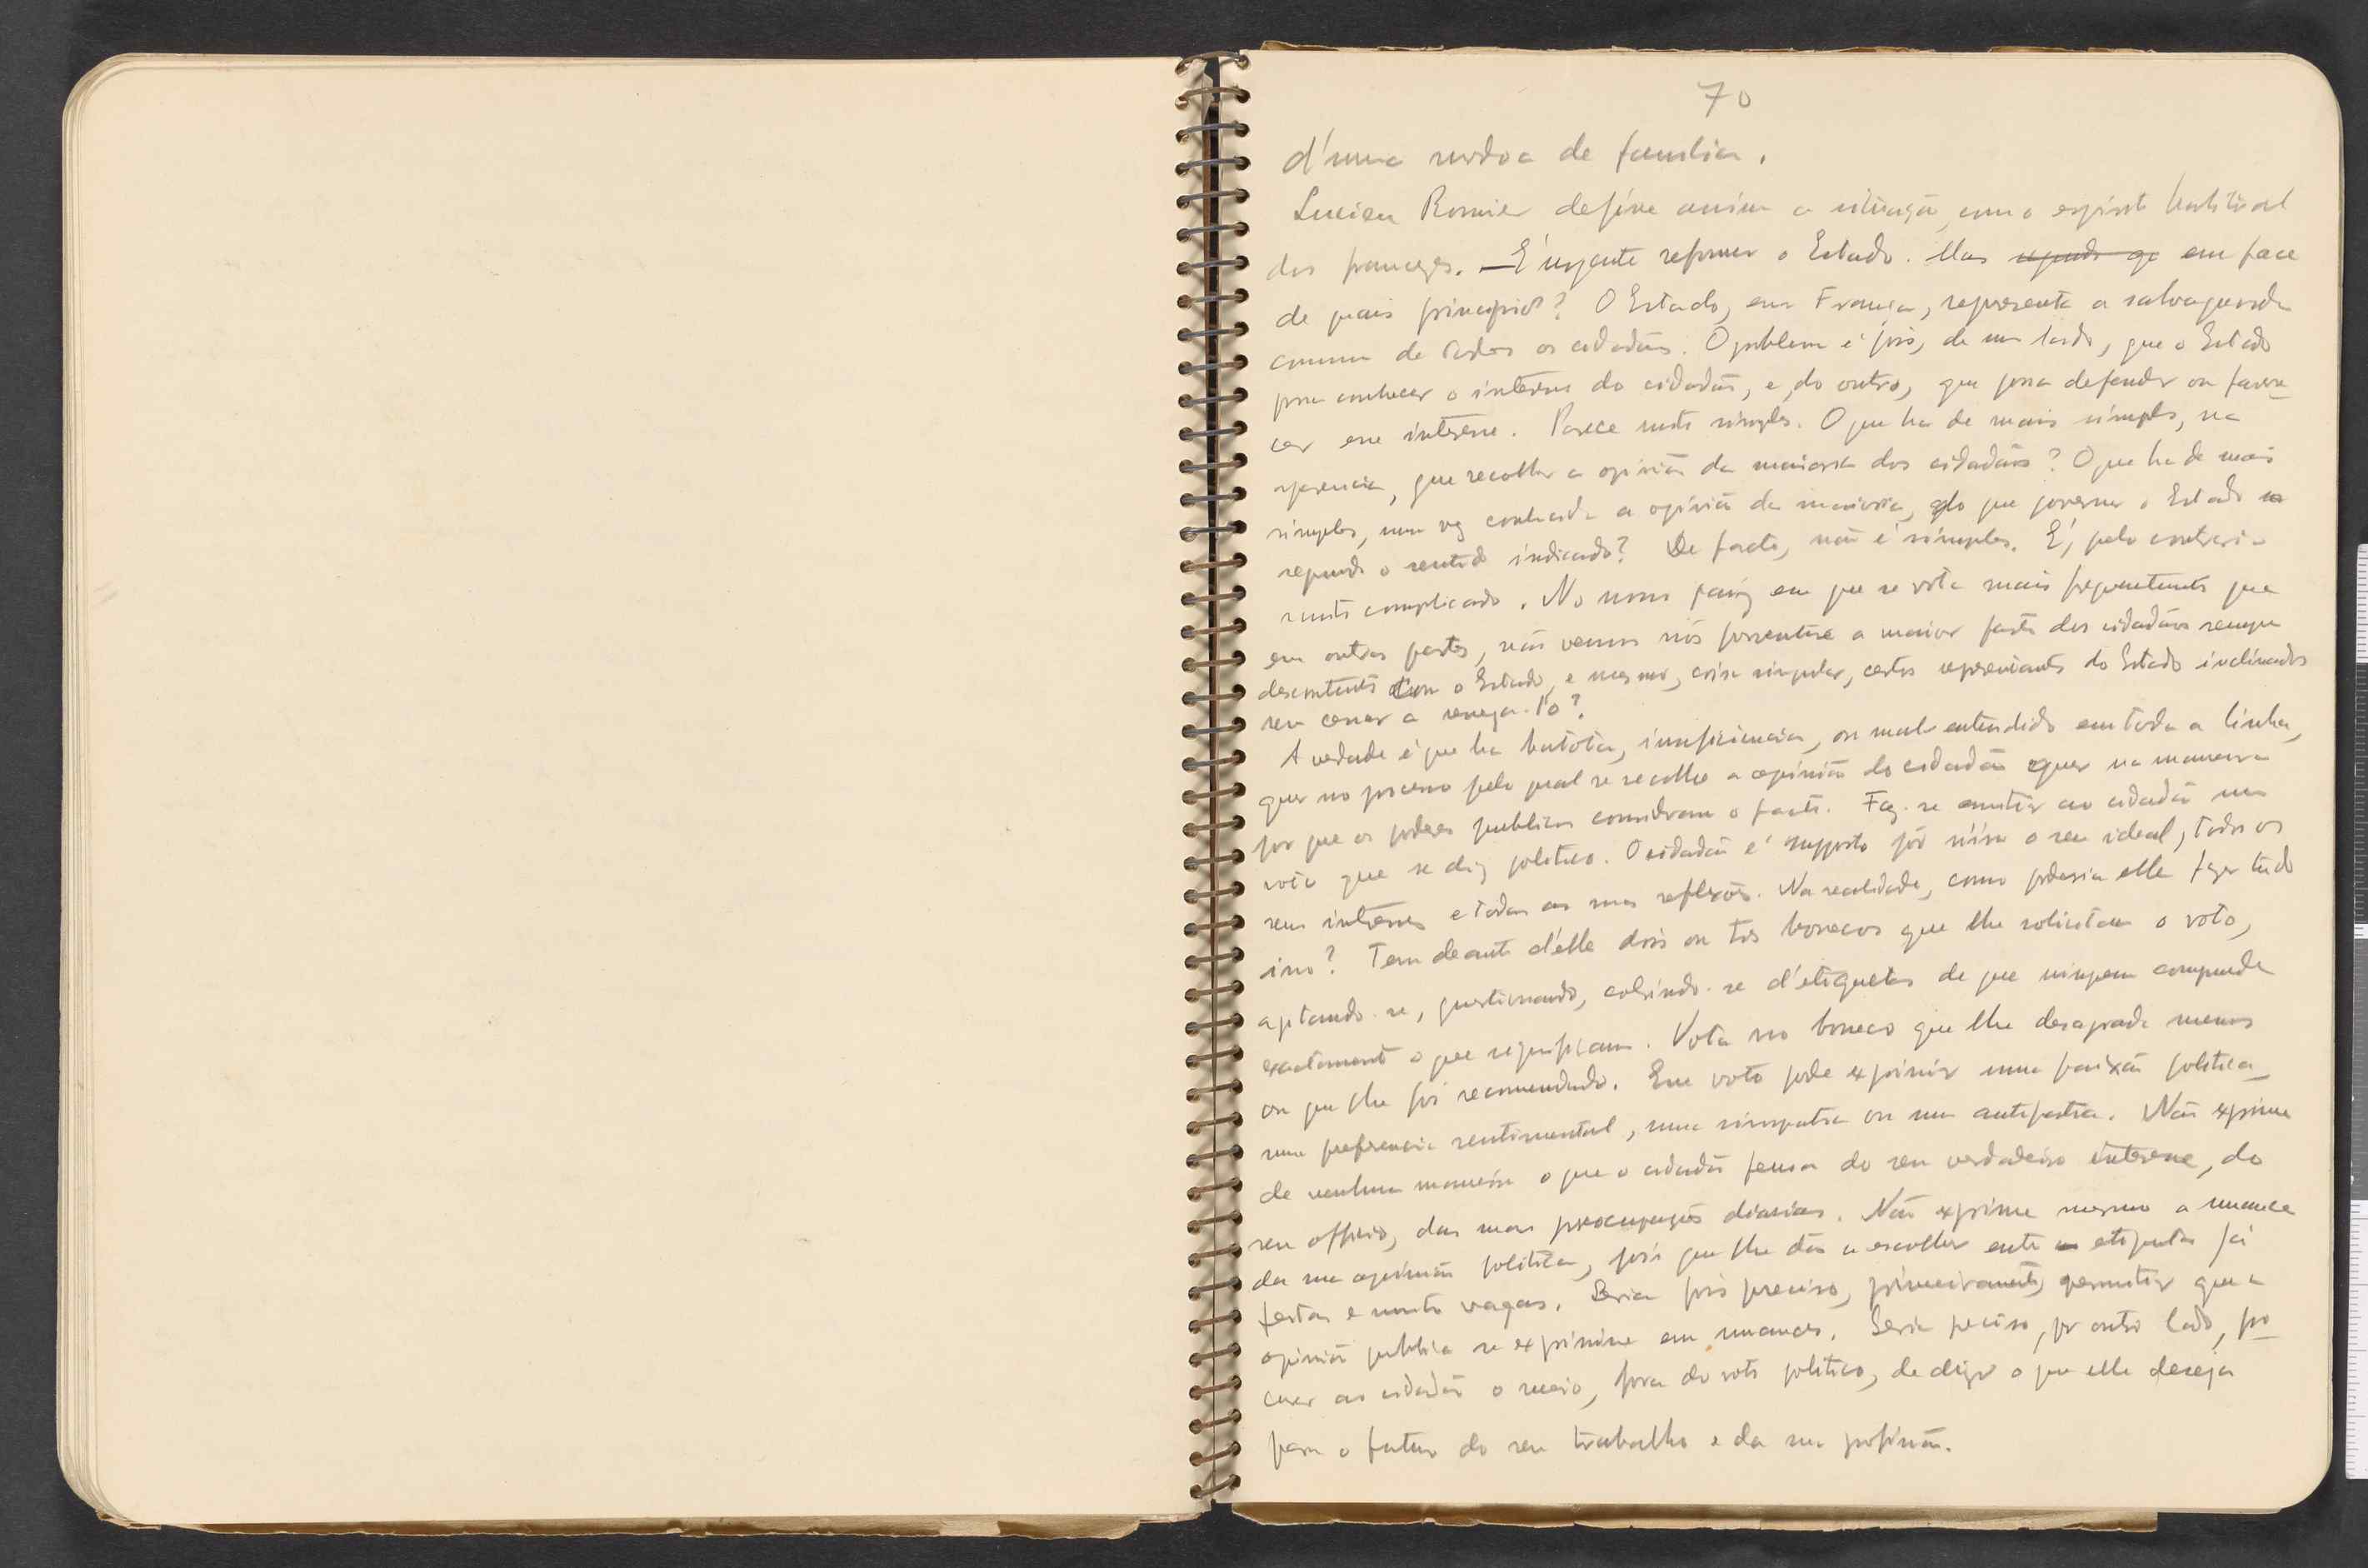 70
d'uma nodoa de familia.
Lucien Romier define assim a situação, com o espirito habitual
dos francezes. — É urgente reformar o Estado. Mas segundo q em face
de quais principios? O Estado, em França, representa a salvaguarda
commum de todos os cidadãos. O problema é pois, de um lado, que o Estado
possa conhecer o interesse do cidadão, e, do outro, que possa defender ou favore-
cer esse interesse. Parece muito simples. O que ha de mais simples, na
aparencia, que recolher a opinião da maioria dos cidadãos? O que ha de mais
simples, uma vez conhecida a opinião da maioria, do que governar o Estado
segundo o sentido indicado? De facto, não é simples. É, pelo contrario
muito complicado. No nosso paiz em que se vota mais frequentemente que
em outras partes, não vemos nós porventura a maior parte dos cidadãos sempre
descontentes com o Estado, e mesmo, coisa singular, certos representantes do Estado inclinados
sem cessar a renega-l'o?
A verdade é que ha batota, insuficiencia, ou mal entendido em toda a linha,
quer no processo pelo qual se recolhe a opinião do cidadão quer na maneira
por que os poderes publicos consideram o facto. Faz-se emitir ao cidadão um
voto que se diz politico. O cidadão é supposto pôr n'isso o seu ideal, todos os
seus interesses e todas as suas reflexões. Na realidade, como poderia elle fazer tudo
isso? Tem deante d'elle dois ou tres bonecos que lhe solicitam o voto,
agitando-se, questionando, cobrindo-se d'etiquetas de que ninguem comprende
exactamente o que significam. Vota no boneco que lhe desagrada menos
ou que lhe foi recomendado. Esse voto pode exprimir uma paixão politica,
uma preferencia sentimental, uma simpatia ou uma antipatia. Não exprime
de nenhuma maneira o que o cidadão pensa do seu verdadeiro interesse, do
seu officio, das suas preocupações diarias. Não exprime mesmo a nuance
da sua opinião politica, pois que lhe dão a escolher entre etiquetas já
feitas e muito vagas. Seria pois preciso, primeiramente, permitir que a
opinião publica se exprimisse em nuances. Seria preciso, por outro lado, for-
necer ao cidadão o meio, fora do voto politico, de dizer o que elle deseja
para o futuro do seu trabalho e da sua profissão.